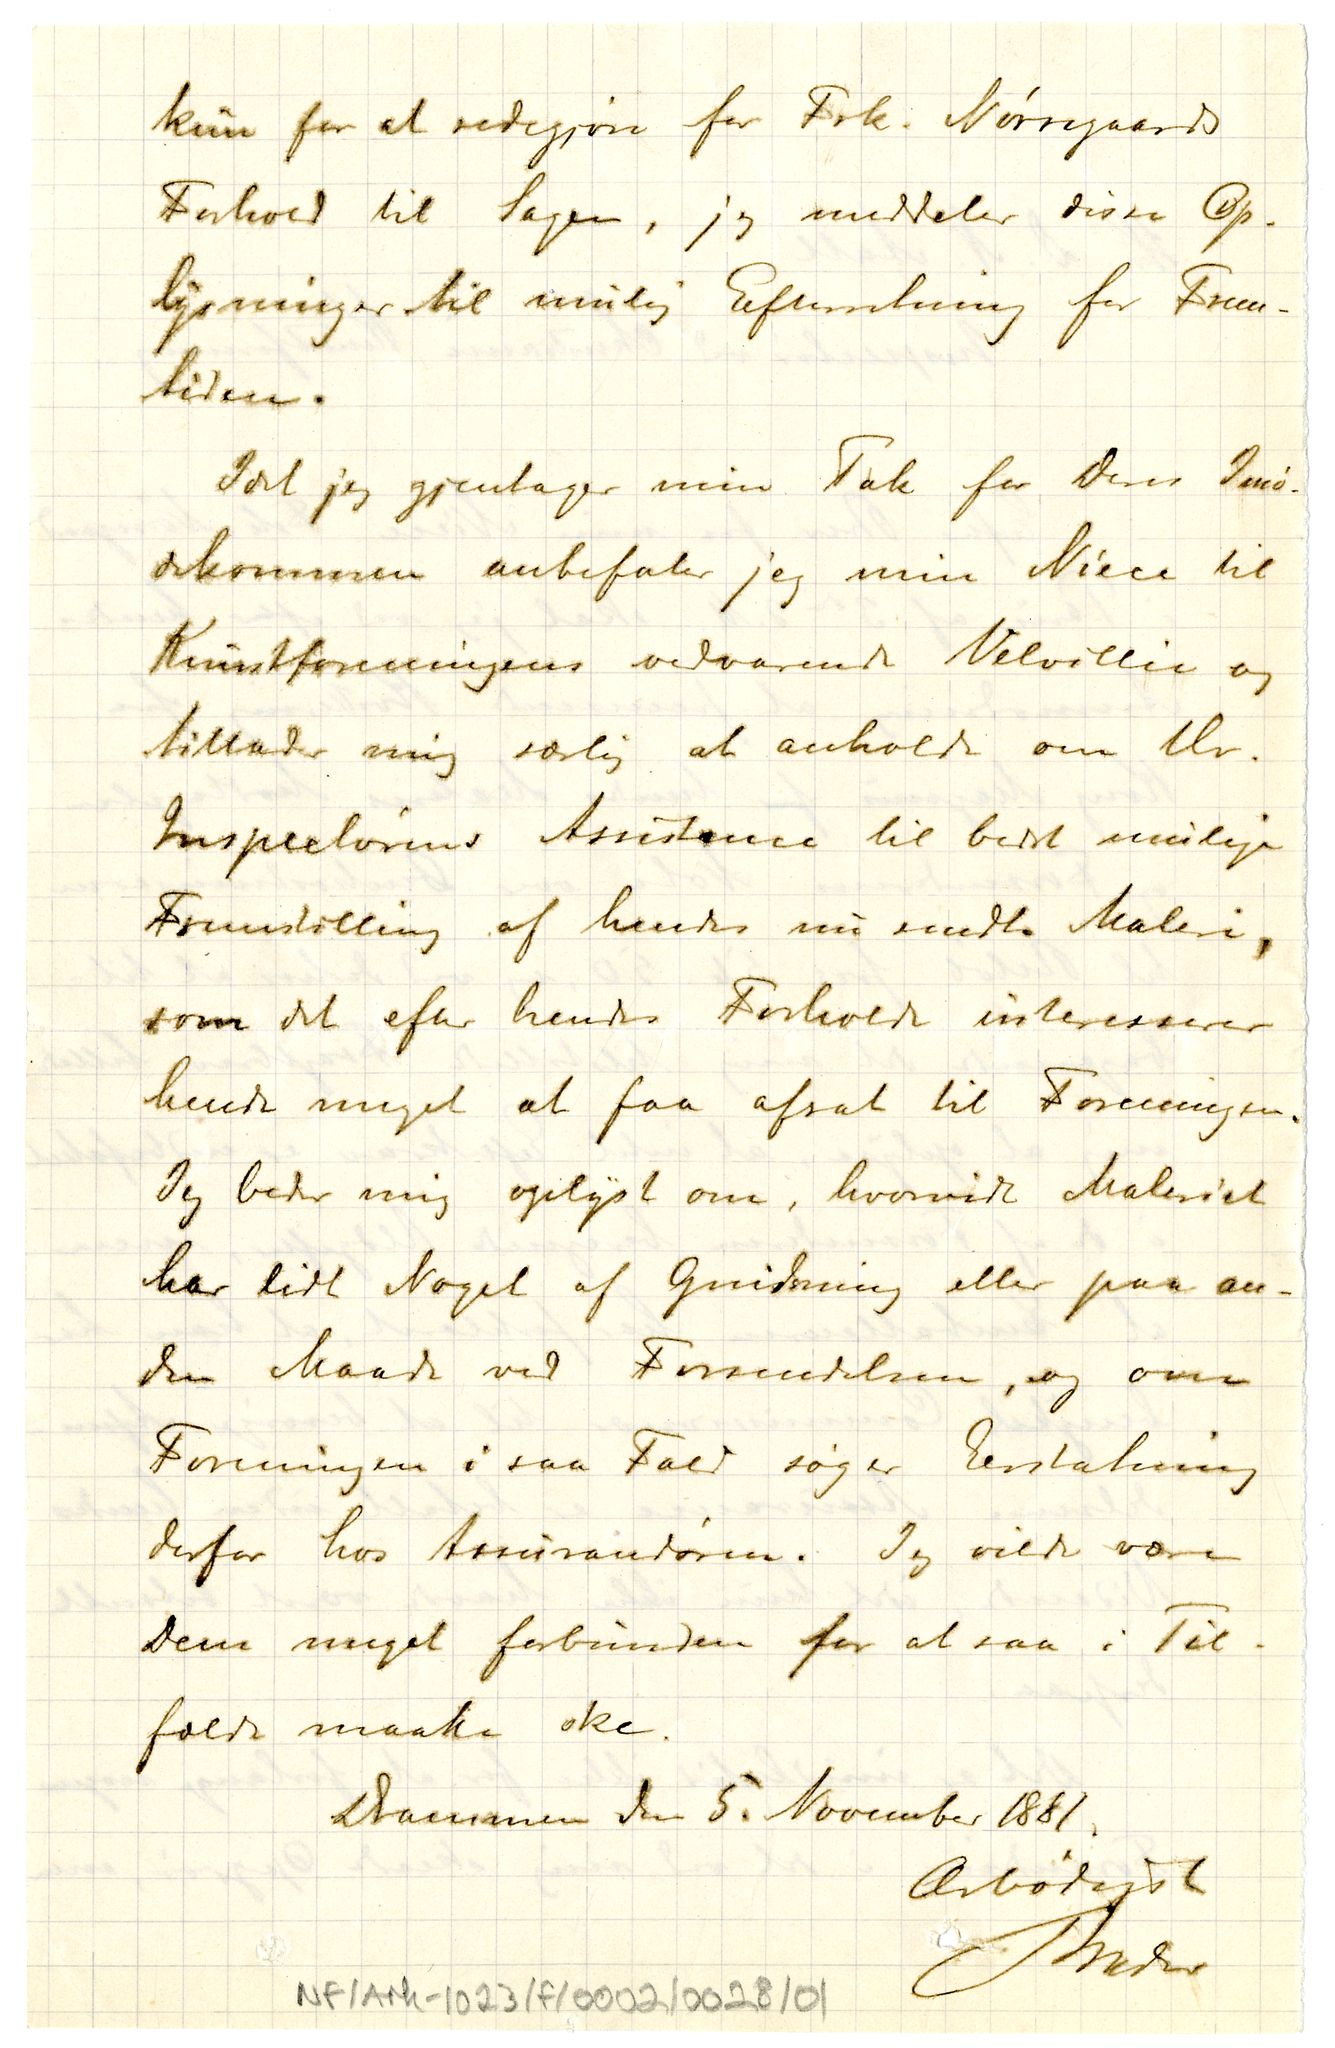 kun for at redegjøre for Frk. Nørregaards
Forhold til Sagen, jeg meddeler disse Op-
lysninger til mulig Efterretning for Frem-
tiden.
Idet jeg gjentager min Tak for Deres Imø-
dekommen anbefaler jeg min Niece til
Kunstforeningens vedvarende Velvillie og
tillader mig særlig at anholde om Hr.
Inspectørens Assistence til bedst mulige
Fremstilling af hendes nu sendte Maleri,
som det efter hendes Forholde interesserer
hende meget at faa afsat til Foreningen.
Jeg beder mig oplyst om, hvorvidt Maleriet
har lidt Noget af Gnidning eller paa an-
den Maade ved Forsendelsen, og om
Foreningen i saa Fald søger Erstatning
derfor hos Assurandøren. Jeg vilde være
Dem meget forbunden for at saa i Til-
fælde maatte ske.
Drammen den 5. November 1881.
Ærbødigst
NF/Ark-1023/F/0002/0028/01